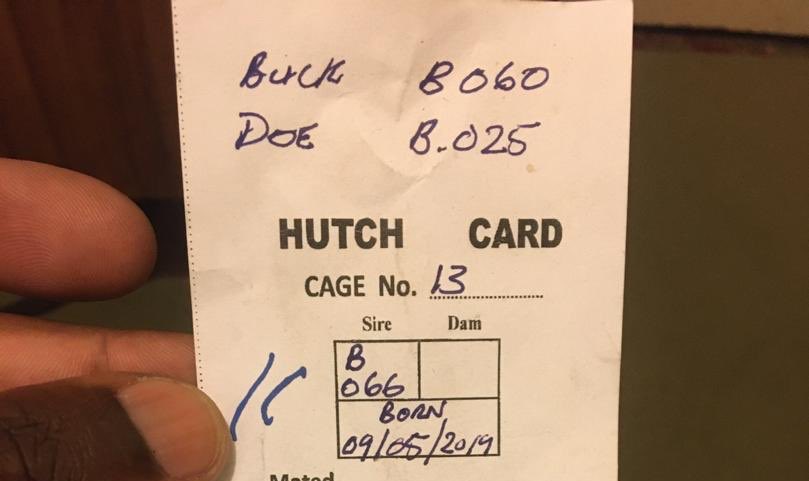 Buck B060
DOE B.025
HUTCH CARD
CAGE No. 13
Sire Dam
B
066
BORN
09/05/2019
Mated